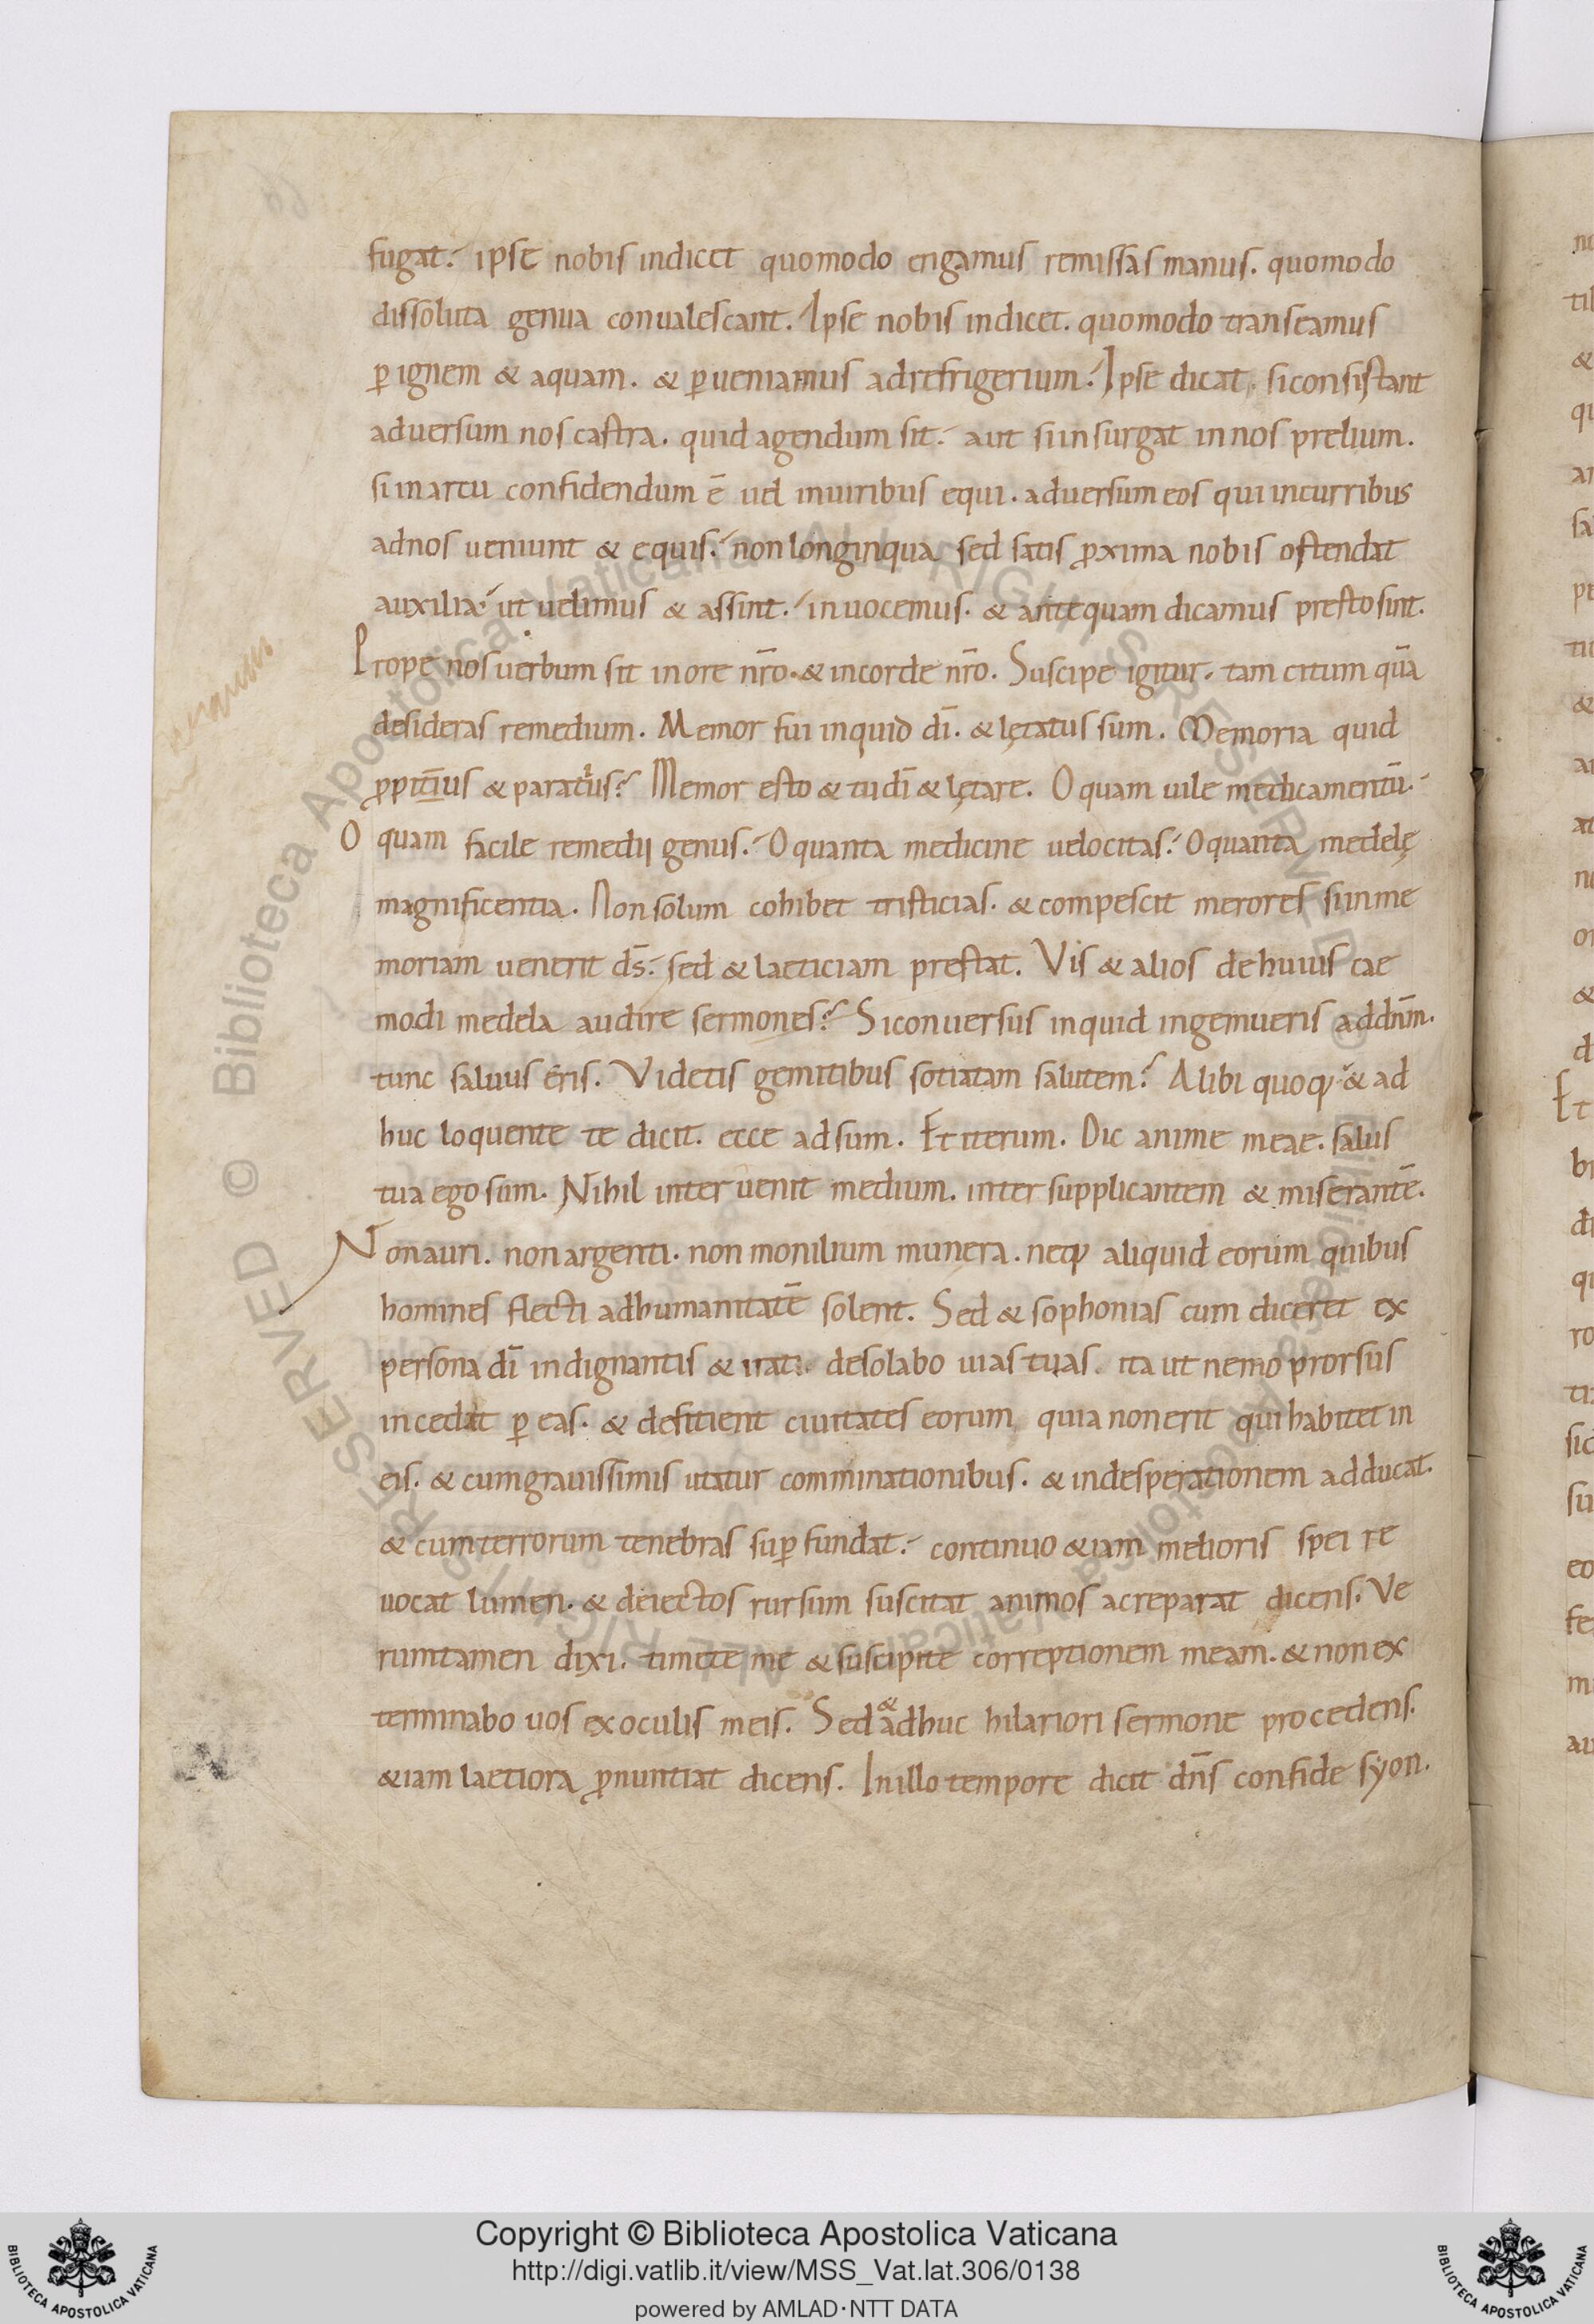 fugat. ipse nobis indicet quomodo erigamus remissas manus. quomodo
dissoluta genua conualescant. Ipse nobis indicet. quomodo transeamus
p̱ ignem & aquam. & p̱ueniamus adrefrigerium. Ipse dicat, siconsistant
aduersum nos castra. quid agendum sit. aut siinsurgat innos prelium.
siinarcu confidendum ē uel inuiribus equi. aduersum eos qui incurribus
adnos ueniunt & equis. non longinqua sed satis ꝓxima nobis ostendat
auxilia. ut uelimus & assint. inuocemus. & antequam dicamus presto sint.
Prope nos uerbum sit inore nr̄o. & incorde nr̄o. Suscipe igitur. tam citum quā
desideras remedium. Memor fui inquid dī. & lętatus sum. Memoria quid
ꝓpitius & paratius? Memor esto & tu dī & lętare. O quam uile medicamentū.
O quam facile remedij genus. O quanta medicine uelocitas. O quanta medelę
magnificentia. Non solum cohibet tristicias. & compescit merores siinme
moriam uenerit ds̄. sed & laeticiam prestat. Vis & alios dehuius cae
modi medela audire sermones? Siconuersus inquid ingemueris addn̄m.
tunc saluus eris. Videtis gemitibus sotiatam salutem? Alibi quoqꝫ & ad
huc loquente te dicit. ecce adsum. Et iterum. Dic anime meae. salus
tua ego sum. Nihil interuenit medium. inter supplicantem & miserantē.
Non auri. non argenti. non monilium munera. neqꝫ aliquid eorum quibus
homines flecti adhumanitatē solent. Sed & sophonias cum diceret ex
persona dī indignantis & irati. desolabo uias tuas. ita ut nemo prorsus
incedat p̱ eas. & defitient ciuitates eorum quia non erit qui habitet in
eis. & cum grauissimis utatur comminationibus. & indesperationem adducat.
& cum terrorum tenebras sup̱fundat. continuo &iam melioris spei re
uocat lumen. & deiectos rursum suscitat animos ac reparat dicens. Ve
rumtamen dixi. timete me & suscipite correptionem meam. & non ex
terminabo uos exoculis meis. Sed & adhuc hilariori sermone procedens.
&iam laetiora ꝓnuntiat dicens. Inillo tempore dicit dn̄s confide syon.
Copyright © Biblioteca Apostolica Vaticana
http://digi.vatlib.it/view/MSS_Vat.lat.306/0138
powered by AMLAD·NTT DATA